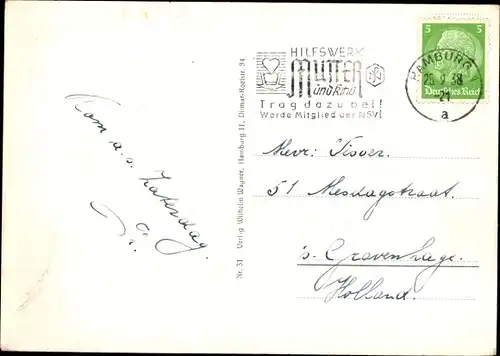 HILFSWERK
MUTTER
und Kind
Trag dazu bei!
Werde Mitglied der NSV!
HAMBURG
25.9.38
21
a
5 5
Deutsches Reich
Kom a.s. Zaterdag.
Mevr: Visser.
51 Mesdagstraat.
's-Gravenhage.
Holland.
Nr. 31 Verlag Wilhelm Wagner, Hamburg 11, Ditmar-Koelstr. 34